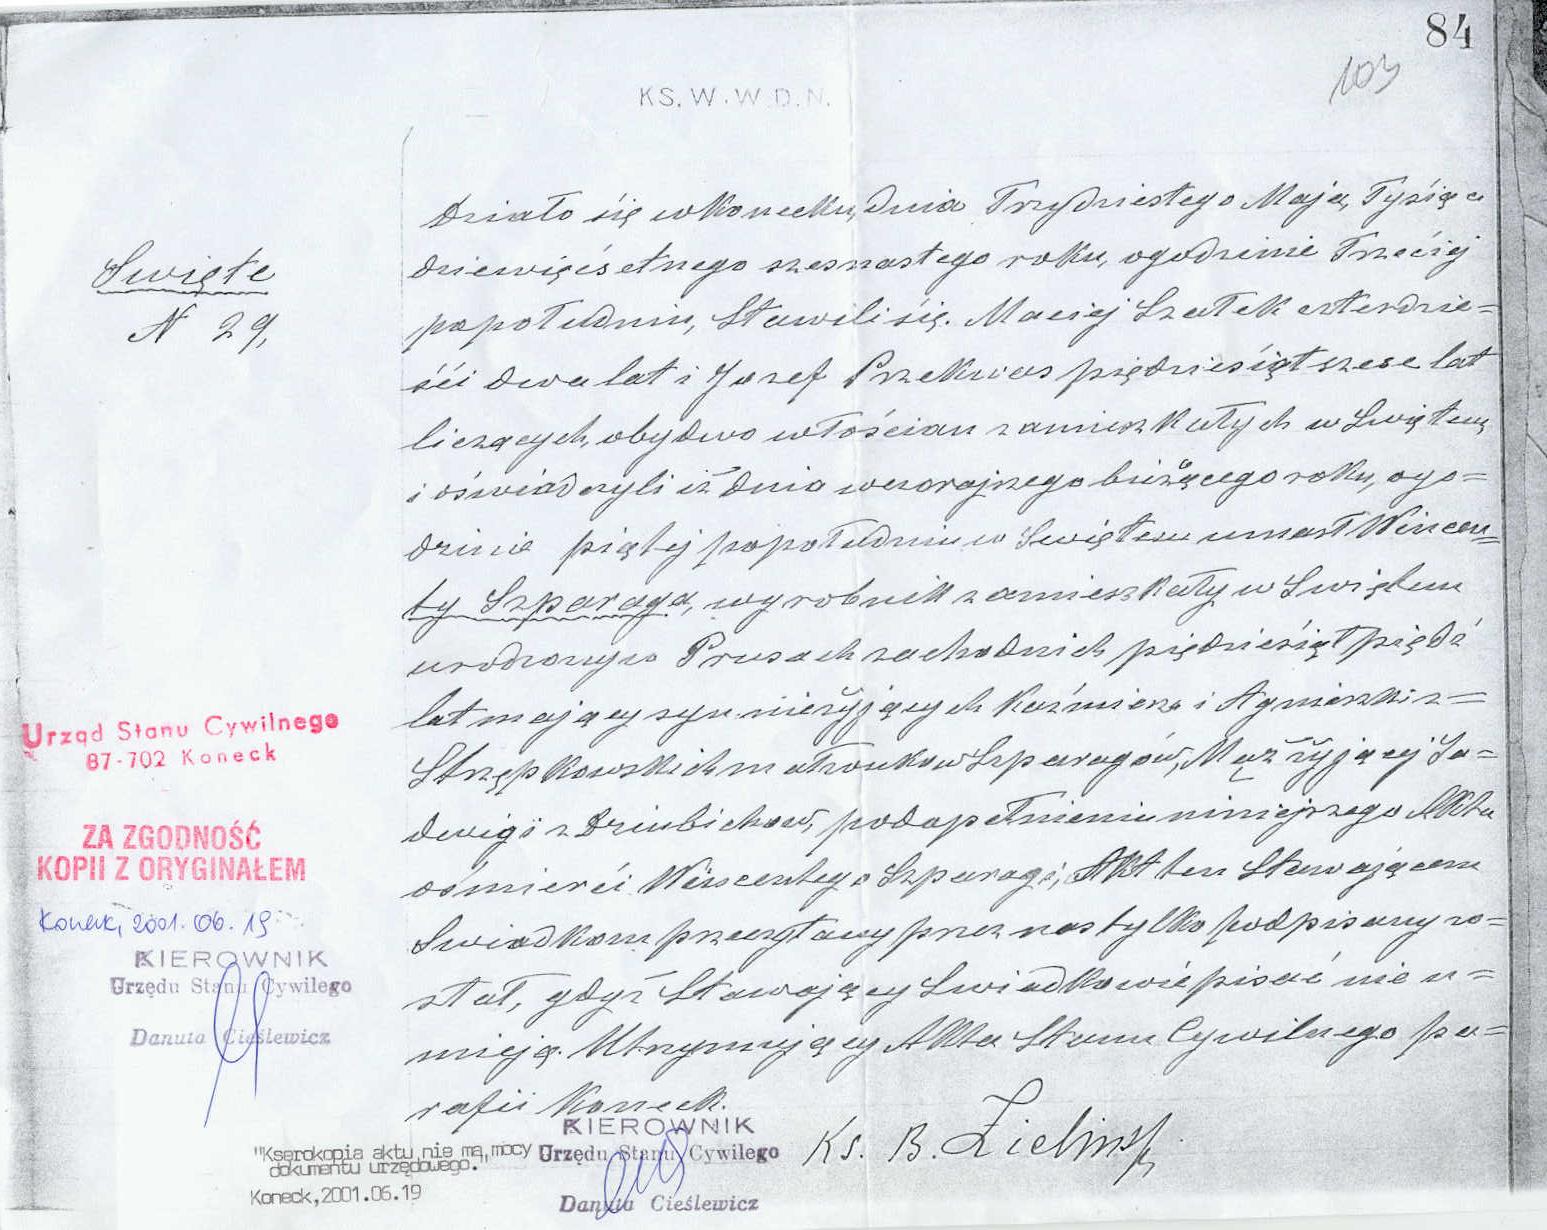 84
103
KS. W. W. D. N.
Działo się w Konecku, dnia Trzydziestego Maja, Tysiąc
dziewięćsetnego szesnastego roku, ogodzinie Trzeciej
popołudniu, Stawili się. Maciej Szałek czterdzie=
ści dwa lat i Jozef Przekwas piędziesiąt szesc lat
liczących, obydwo włościan zamieszkałych w Swiętem
i oświadczyli iż dnia wczorajszego bieżącego roku, ogo=
dzinie piątej popołudniu w Swiętem umarł Wincen=
ty Szparaga, wyrobnik zamieszkały w Swiętem
urodzony w Prusach zachodnich piędziesiąt piędź
lat mający syn nieżyjących Kaźmierza i Agnieszki z=
Strzępkowskich małzonkow Szparagów, Mąż żyjącej Ja=
dwigi z Dziubichow, podopełnieniu niniejszego Akta
ośmierći Wincentego Szparagi, Akt ten Stawającem
Swiadkom przeczytany przez nas tylko podpisany zo=
stał, gdyż Stawający Swiadkowie pisać nie u=
mieją. Utrzymujący Akta Stanu Cywilnego pa=
rafii Koneck.
Ks. B. Zieliński
Swięte
N 29,
Urząd Stanu Cywilnego
87-702 Koneck
ZA ZGODNOŚĆ
KOPII Z ORYGINAŁEM
Koneck, 2001. 06. 19
KIEROWNIK
Urzędu Stanu Cywilego
Danuta Cieślewicz
"Kserokopia aktu nie ma mocy
dokumentu urzędowego."
Koneck,2001.06.19
KIEROWNIK
Urzędu Stanu Cywilego
Danuta Cieślewicz